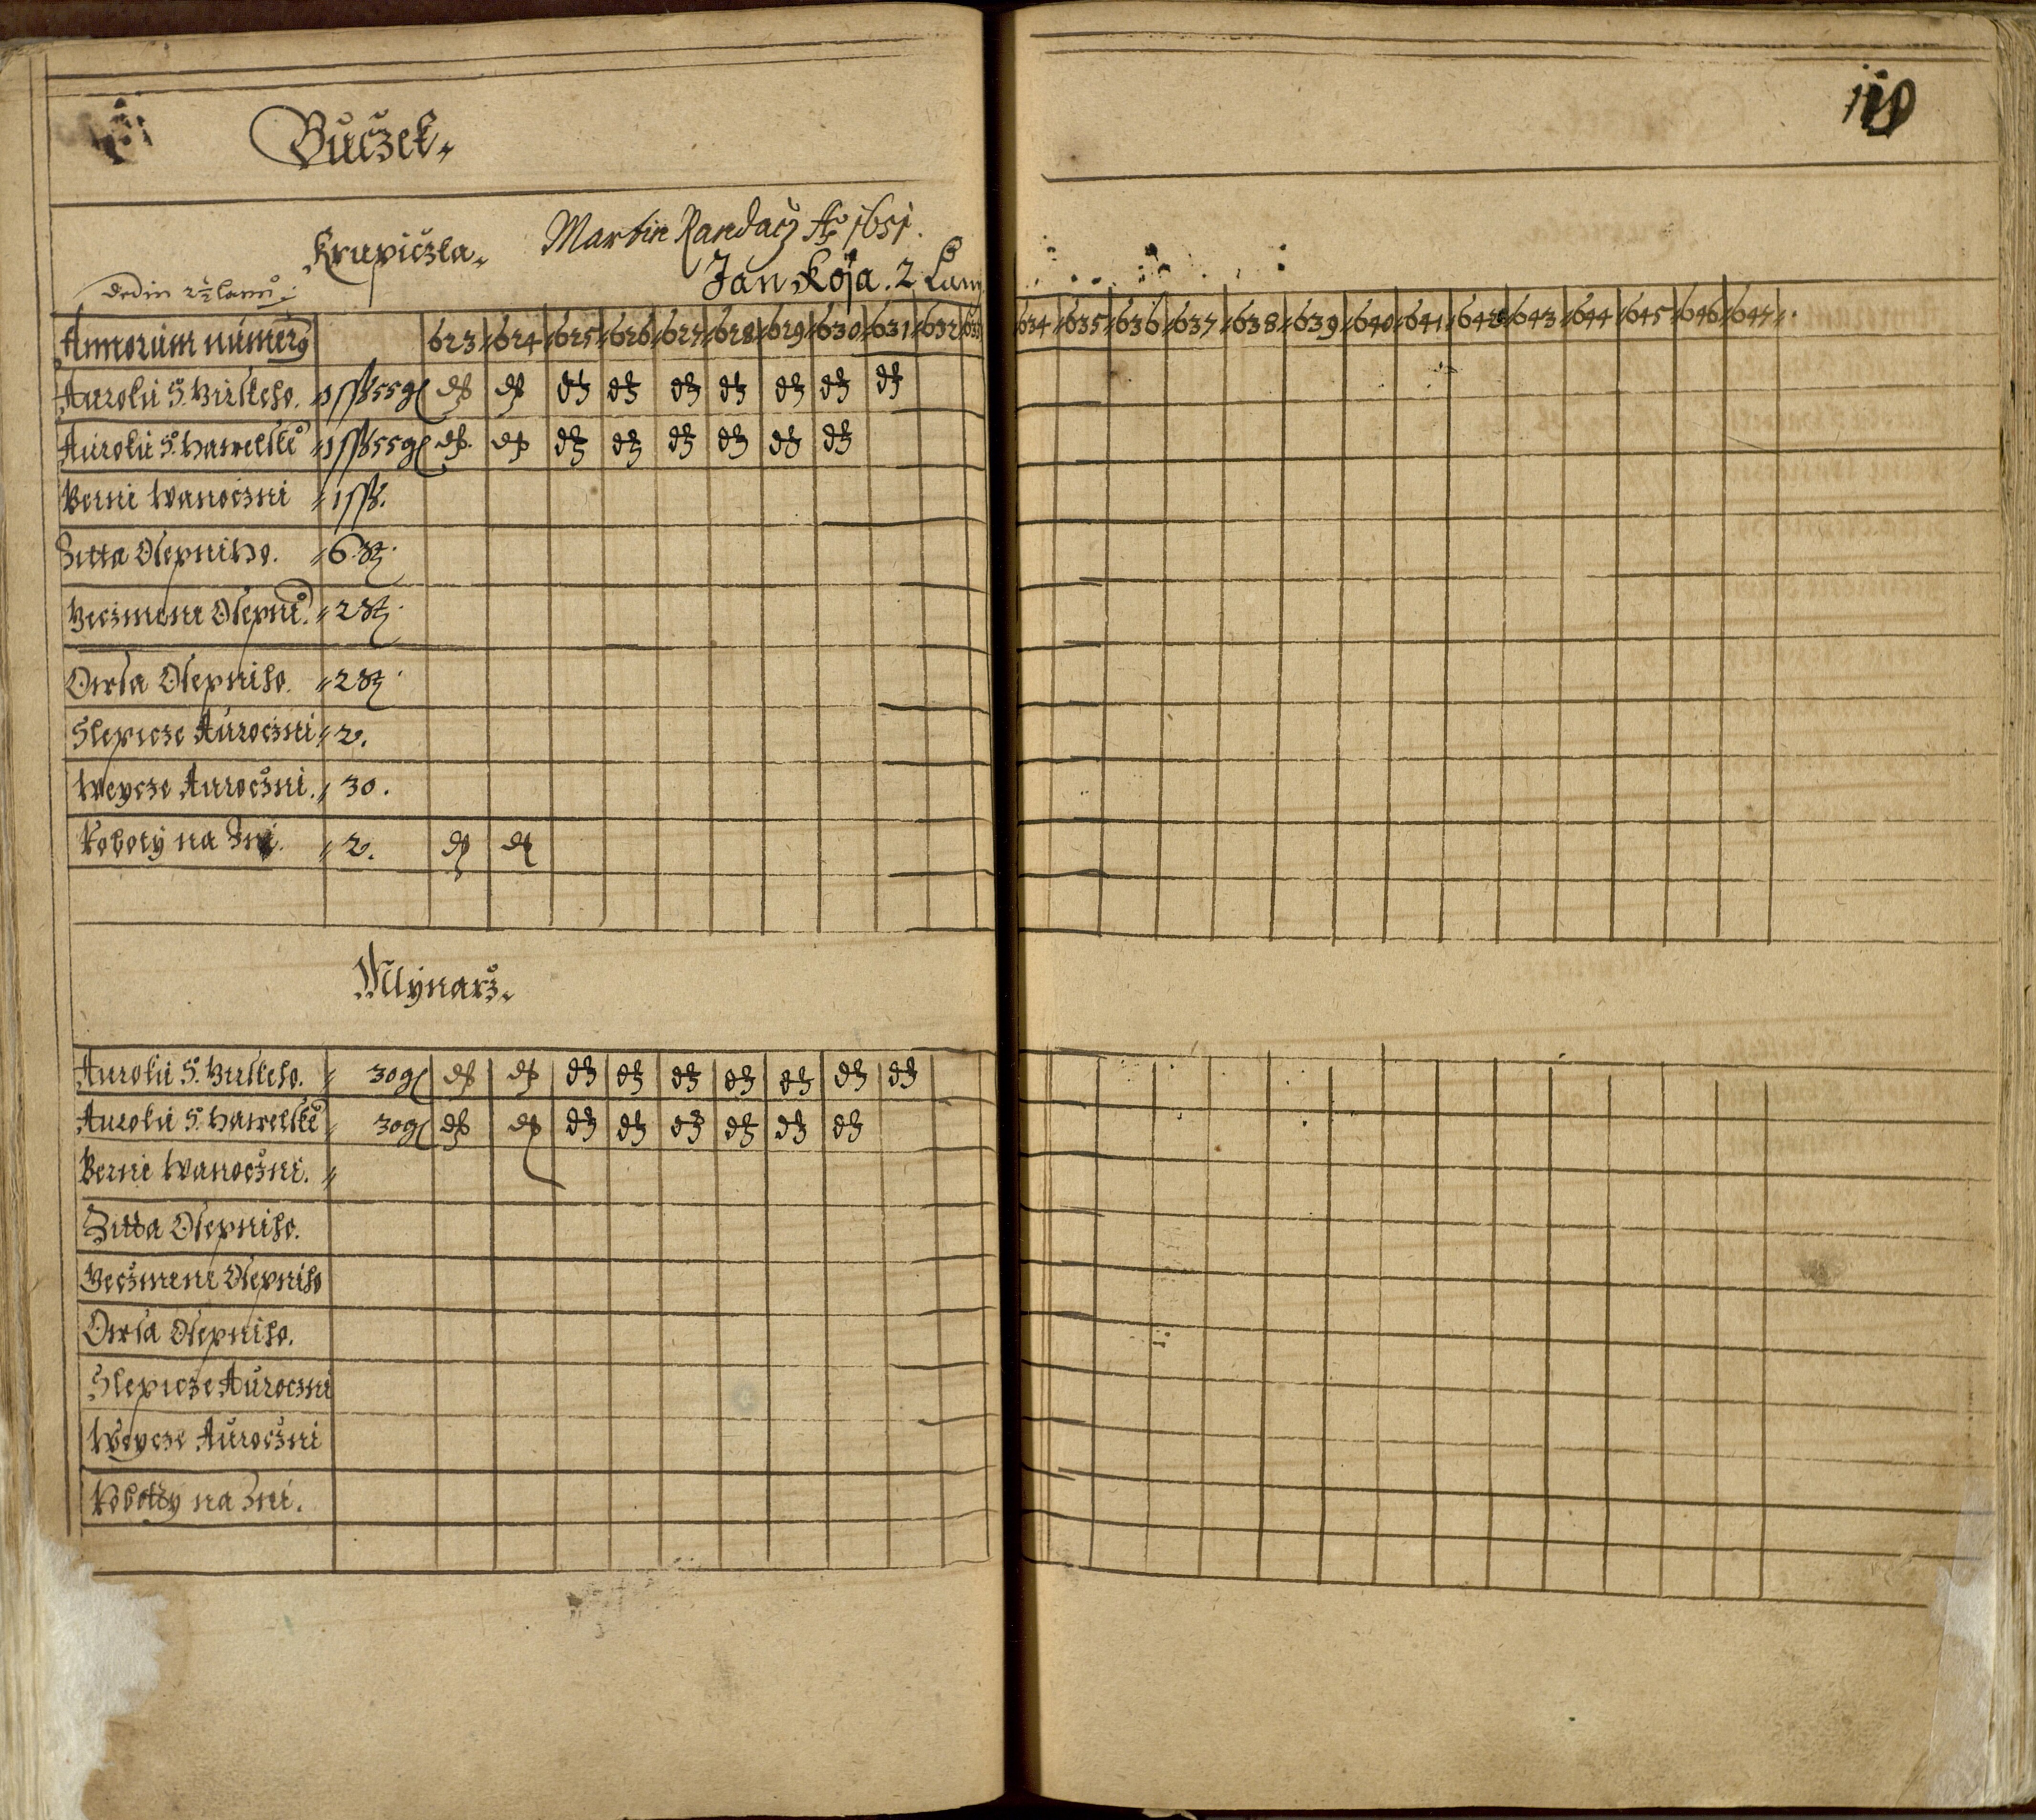 Bůczek
110
Krupiczka
Martin Randacz Ao 1651.
Jan Koja. 2 Lanu
Dedin 2½ lanů
Annorum numerg 623 624 625 626 627 628 629 630 631 632 633 634 635 636 637 638 639 640 641 642 643 644 645 646 647
Auroku S. Girskeho. 1 ssk 55 gl ds ds dg dg dg dg dg dg dg
Auroku S. Hawelske 1 ssk 55 gl ds ds dg dg dg dg dg dg
Berni Wanoczni 1 ssk.
Zitta Osepniho. 6 St.
Geczmene Osepni. 2 St.
Owsa Osepniho. 2 St.
Slepicze Auroczni 2.
Weycze Auroczni. 30.
Roboty na Zni. 2. ds ds
Mlynarz
Auroku S. Girskeho. 30 gl ds ds dg dg dg dg dg dg dg
Auroku S. Hawelske 30 gl ds ds dg dg dg dg dg dg
Berni Wanoczni.
Zitta Osepniho.
Geczmene Osepniho
Owsa Osepniho.
Slepicze Auroczni
Weycze Auroczni
Roboty na Zni.